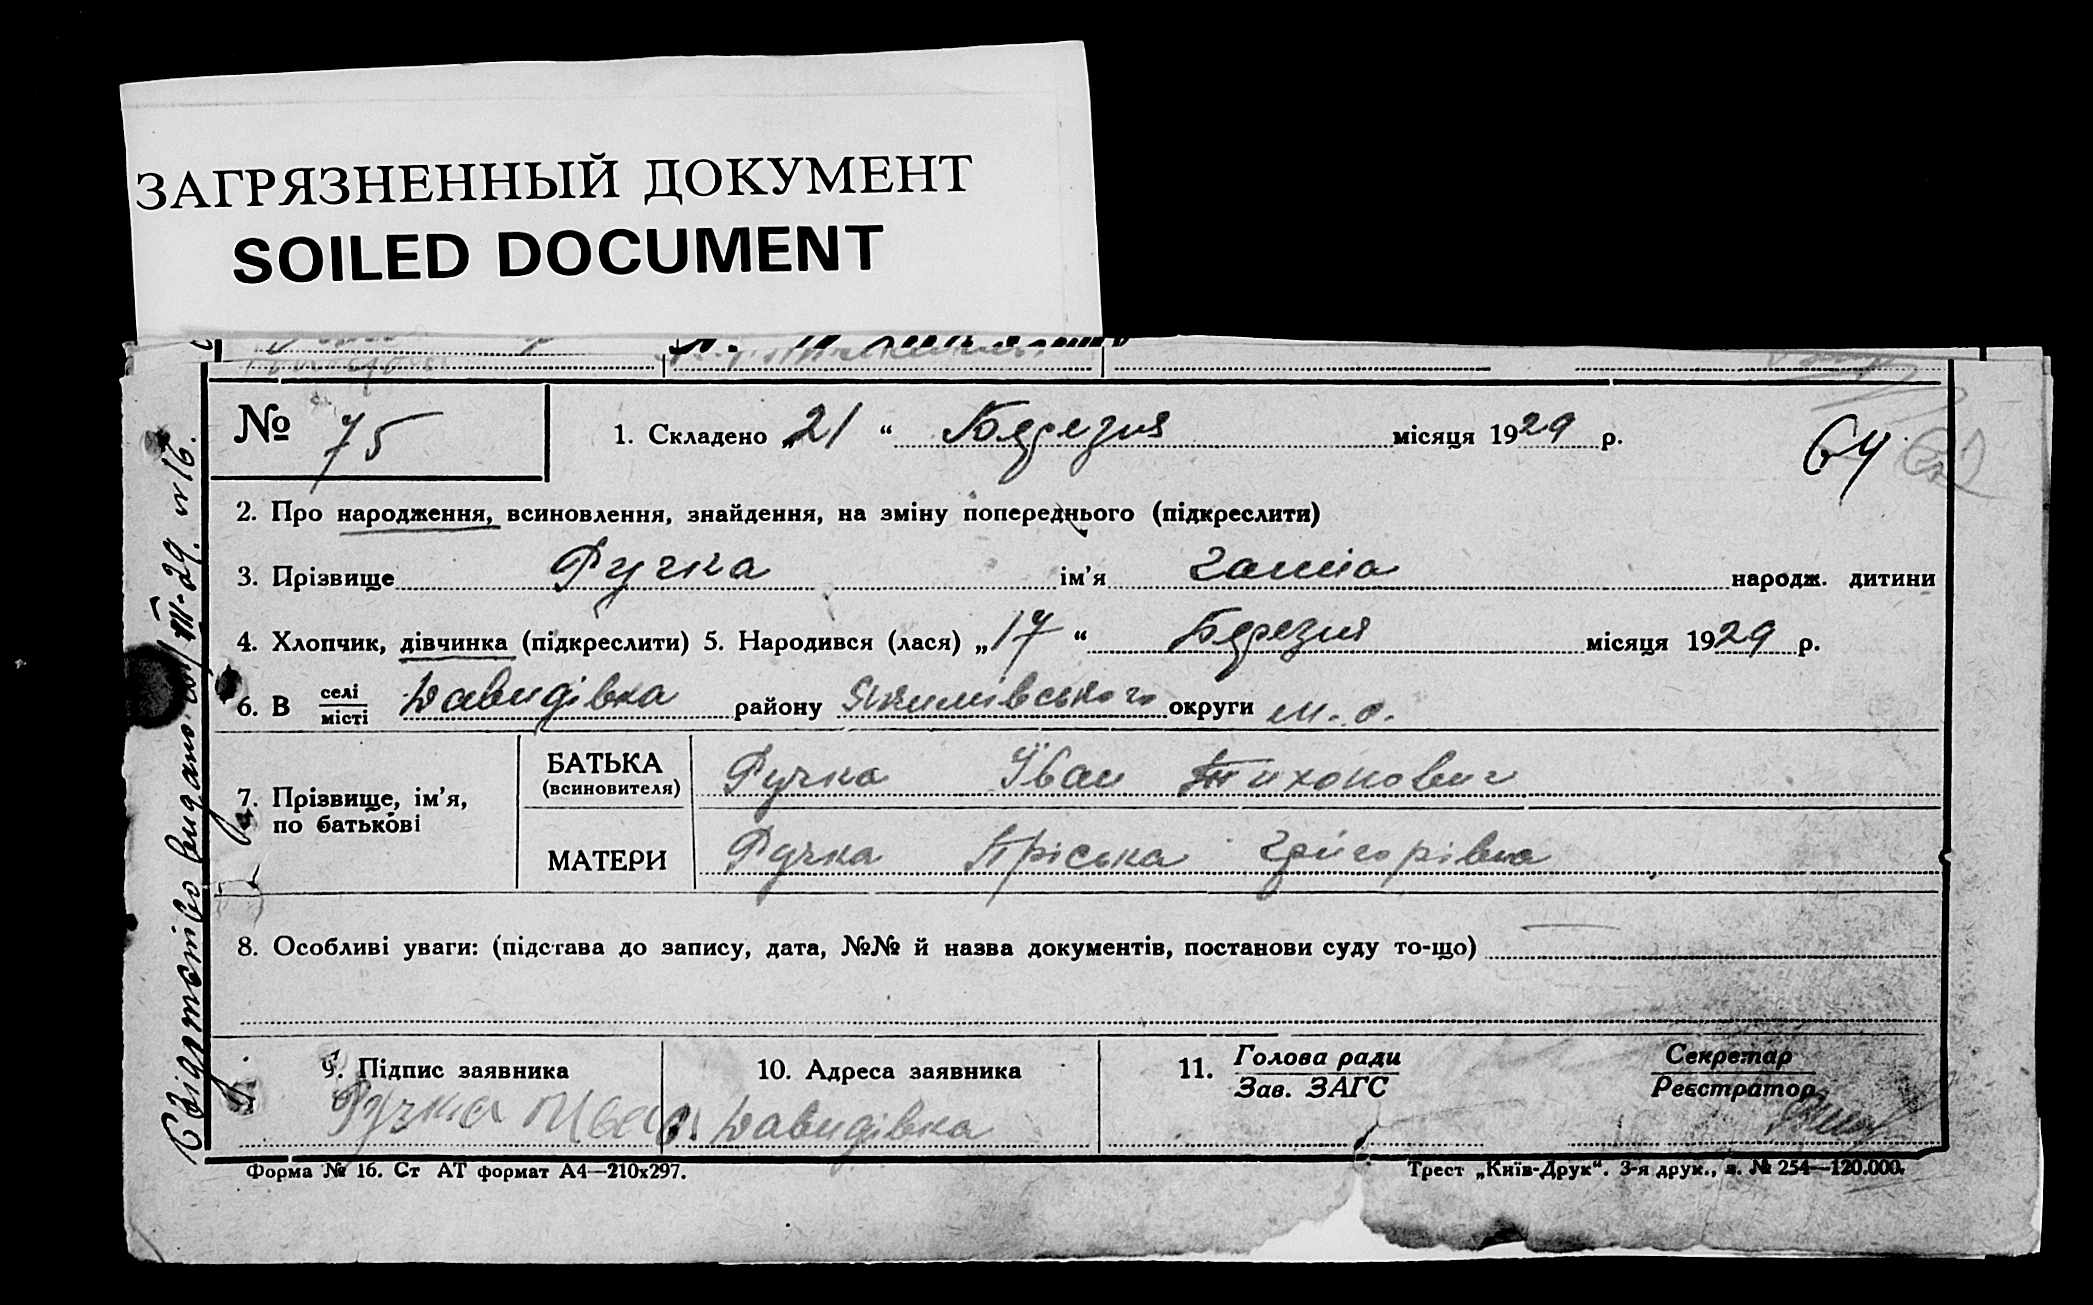 ЗАГРЯЗНЕННЫЙ ДОКУМЕНТ
SOILED DOCUMENT
№ 75
1. Складено „21“ Березня місяця 1929 р.
64
2. Про народження, всиновлення, знайдення, на зміну попереднього (підкреслити)
3. Прізвище Ручка ім'я Ганна народж. дитини
4. Хлопчик, дівчинка (підкреслити) 5. Народився (лася) „17“ Березня місяця 1929 р.
6. В селі/місті Давидівка району Якимівського округи М. о.
7. Прізвище, ім'я, по батькові
БАТЬКА (всиновителя) Ручка Іван Тихонович
МАТЕРИ Ручка Пріська Григорівна
8. Особливі уваги: (підстава до запису, дата, №№ й назва документів, постанови суду то-що)
9. Підпис заявника
Ручка Иван
10. Адреса заявника
с. Давидівка
11. Голова ради
Зав. ЗАГС
Секретар
Реєстратор
Форма № 16. Ст АТ формат А4—210х297.
Трест „Київ-Друк“. 3-я друк., з. № 254—120.000.
Свідоцтво видано III-29. №16.